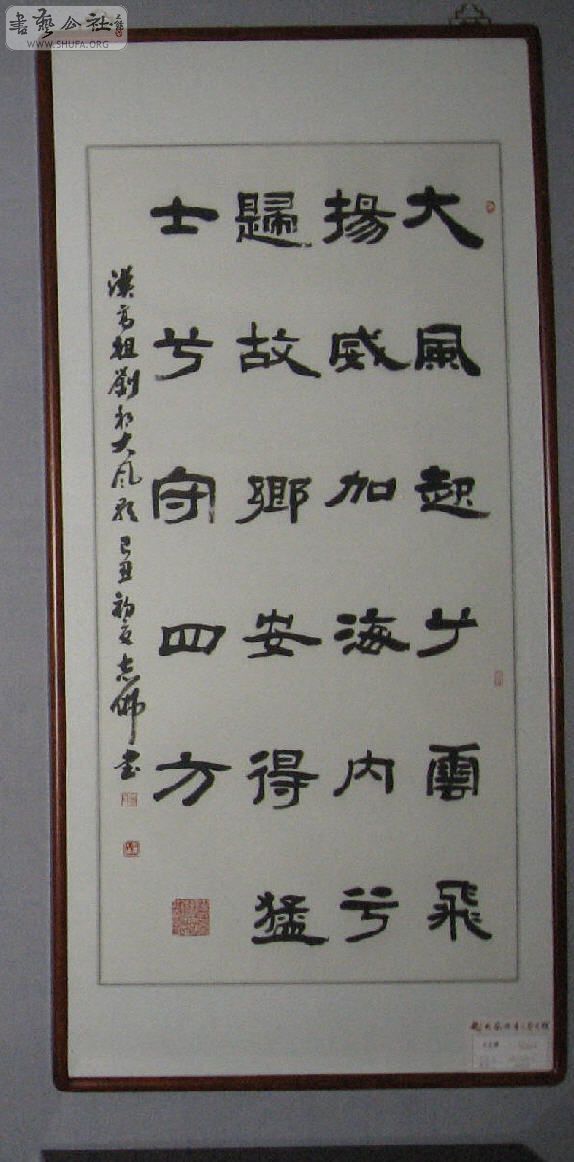 大風起兮雲飛
揚威加海內兮
歸故鄉安得猛
士兮守四方
漢高祖劉邦大風歌己丑初夏志佛書
書藝公社
WWW.SHUFA.ORG